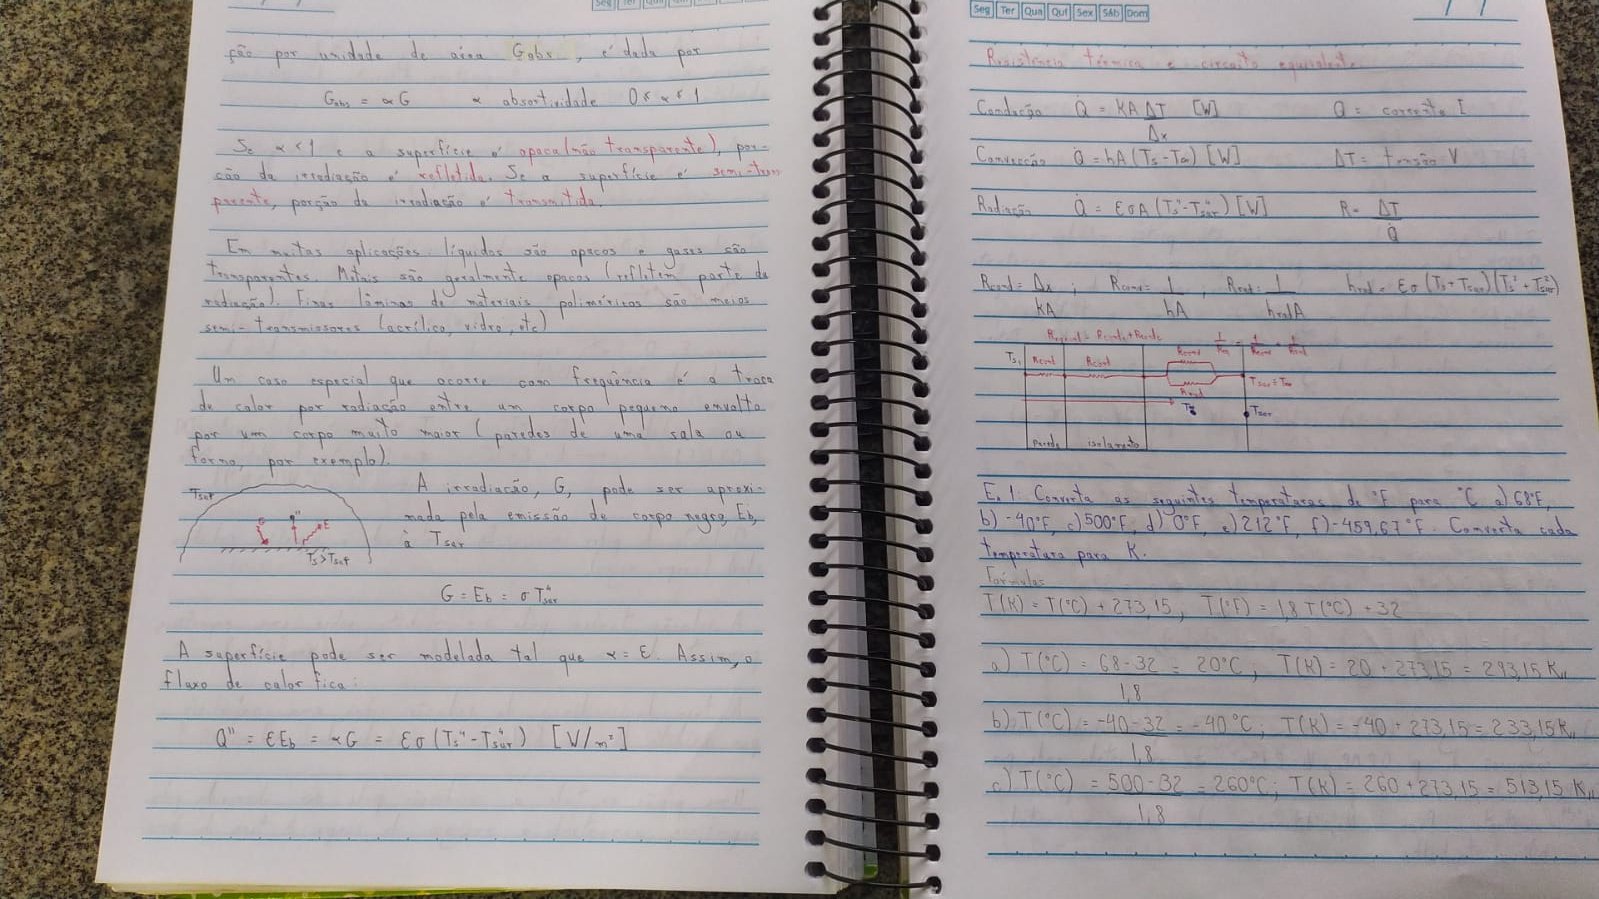 ção por unidade de área Gabs, é dada por
Gabs = αG α absortividade 0< α <1
Se α<1 e a superfície é opaca (não transparente), por-
ção da irradiação é refletida. Se a superfície é semi-trans
parente, porção da irradiação é transmitida.
Em muitas aplicações líquidos são opacos e gases são
transparentes. Metais são geralmente opacos (refletem parte da
radiação). Finas lâminas de materiais poliméricos são meios
semi-transmissores (acrílico, vidro, etc)
Um caso especial que ocorre com frequência é a troca
de calor por radiação entre um corpo pequeno envolto
por um corpo muito maior (paredes de uma sala ou
forno, por exemplo).
A irradiação, G, pode ser aproxi-
mada pela emissão de corpo negro, Eb,
à Tsur
Tsur
G E
Ts>Tsur
G = Eb = σTsur⁴
A superfície pode ser modelada tal que α = ε. Assim, o
fluxo de calor fica:
Q" = εEb = αG = εσ(Ts⁴-Tsur⁴) [W/m²]
Seg Ter Qua Qui Sex Sáb Dom
Resistência térmica e circuito equivalente
Condução Q̇ = KA ΔT/Δx [W] Q = corrente I
Convecção Q̇ = hA(Ts-T∞) [W] ΔT = tensão V
Radiação Q̇ = εσA(Ts⁴-Tsur⁴) [W] R = ΔT/Q̇
Rcond = Δx/KA ; Rconv = 1/hA , Rrad = 1/hradA hrad = εσ(Ts+Tsur)(Ts²+Tsur²)
Ts1 Rcond Rcond Rrad Tsur = T∞
T∞ Tsur
Parede isolamento
Ex 1: Converta as seguintes temperaturas de °F para °C a) 68°F,
b) -40°F, c) 500°F, d) 0°F, e) 212°F, f) -459,67°F. Converta cada
temperatura para K.
Fórmulas
T(K) = T(°C) + 273,15 , T(°F) = 1,8 T(°C) + 32
a) T(°C) = 68-32/1,8 = 20°C ; T(K) = 20 + 273,15 = 293,15 K,,
b) T(°C) = -40-32/1,8 = -40°C ; T(K) = -40 + 273,15 = 233,15 K,,
c) T(°C) = 500-32/1,8 = 260°C ; T(K) = 260 + 273,15 = 513,15 K,,